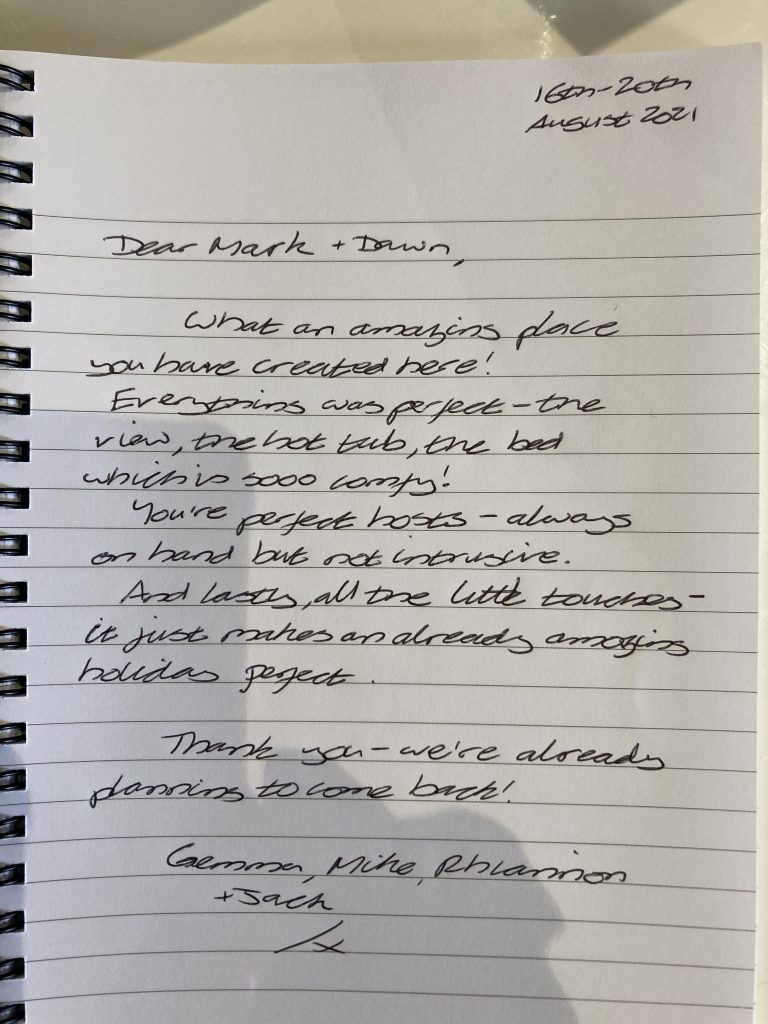 16th-20th
August 2021
Dear Mark + Dawn,
What an amazing place
you have created here!
Everything was perfect - the
view, the hot tub, the bed
which is sooo comfy!
You're perfect hosts - always
on hand but not intrusive.
And lastly, all the little touches -
it just makes an already amazing
holiday perfect.
Thank you - we're already
planning to come back!
Gemma, Mike, Rhiannon
+ Jack
x